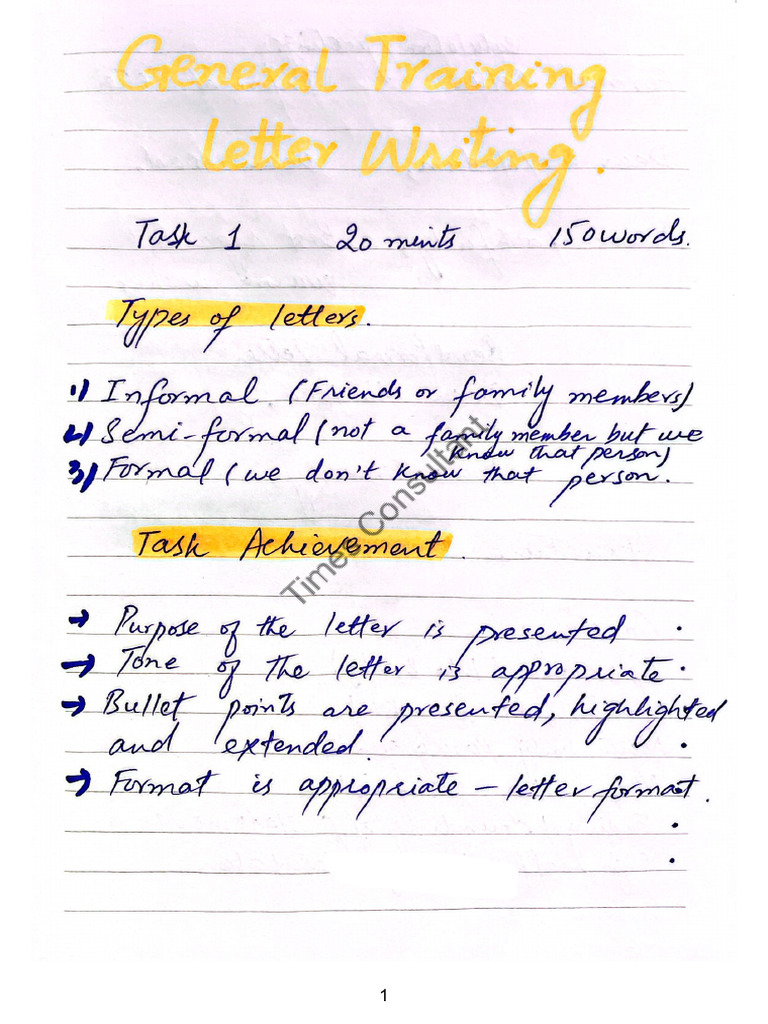 General Training
Letter Writing.
Task 1 20 mints 150 words.
Types of letters.
1) Informal (Friends or family members)
2) Semi-formal (not a family member but we
know that person)
3) Formal (we don't know that person.
Times Consultant
Task Achievement.
→ Purpose of the letter is presented.
→ Tone of the letter is appropriate.
→ Bullet points are presented, highlighted
and extended.
→ Format is appropriate - letter format.
1